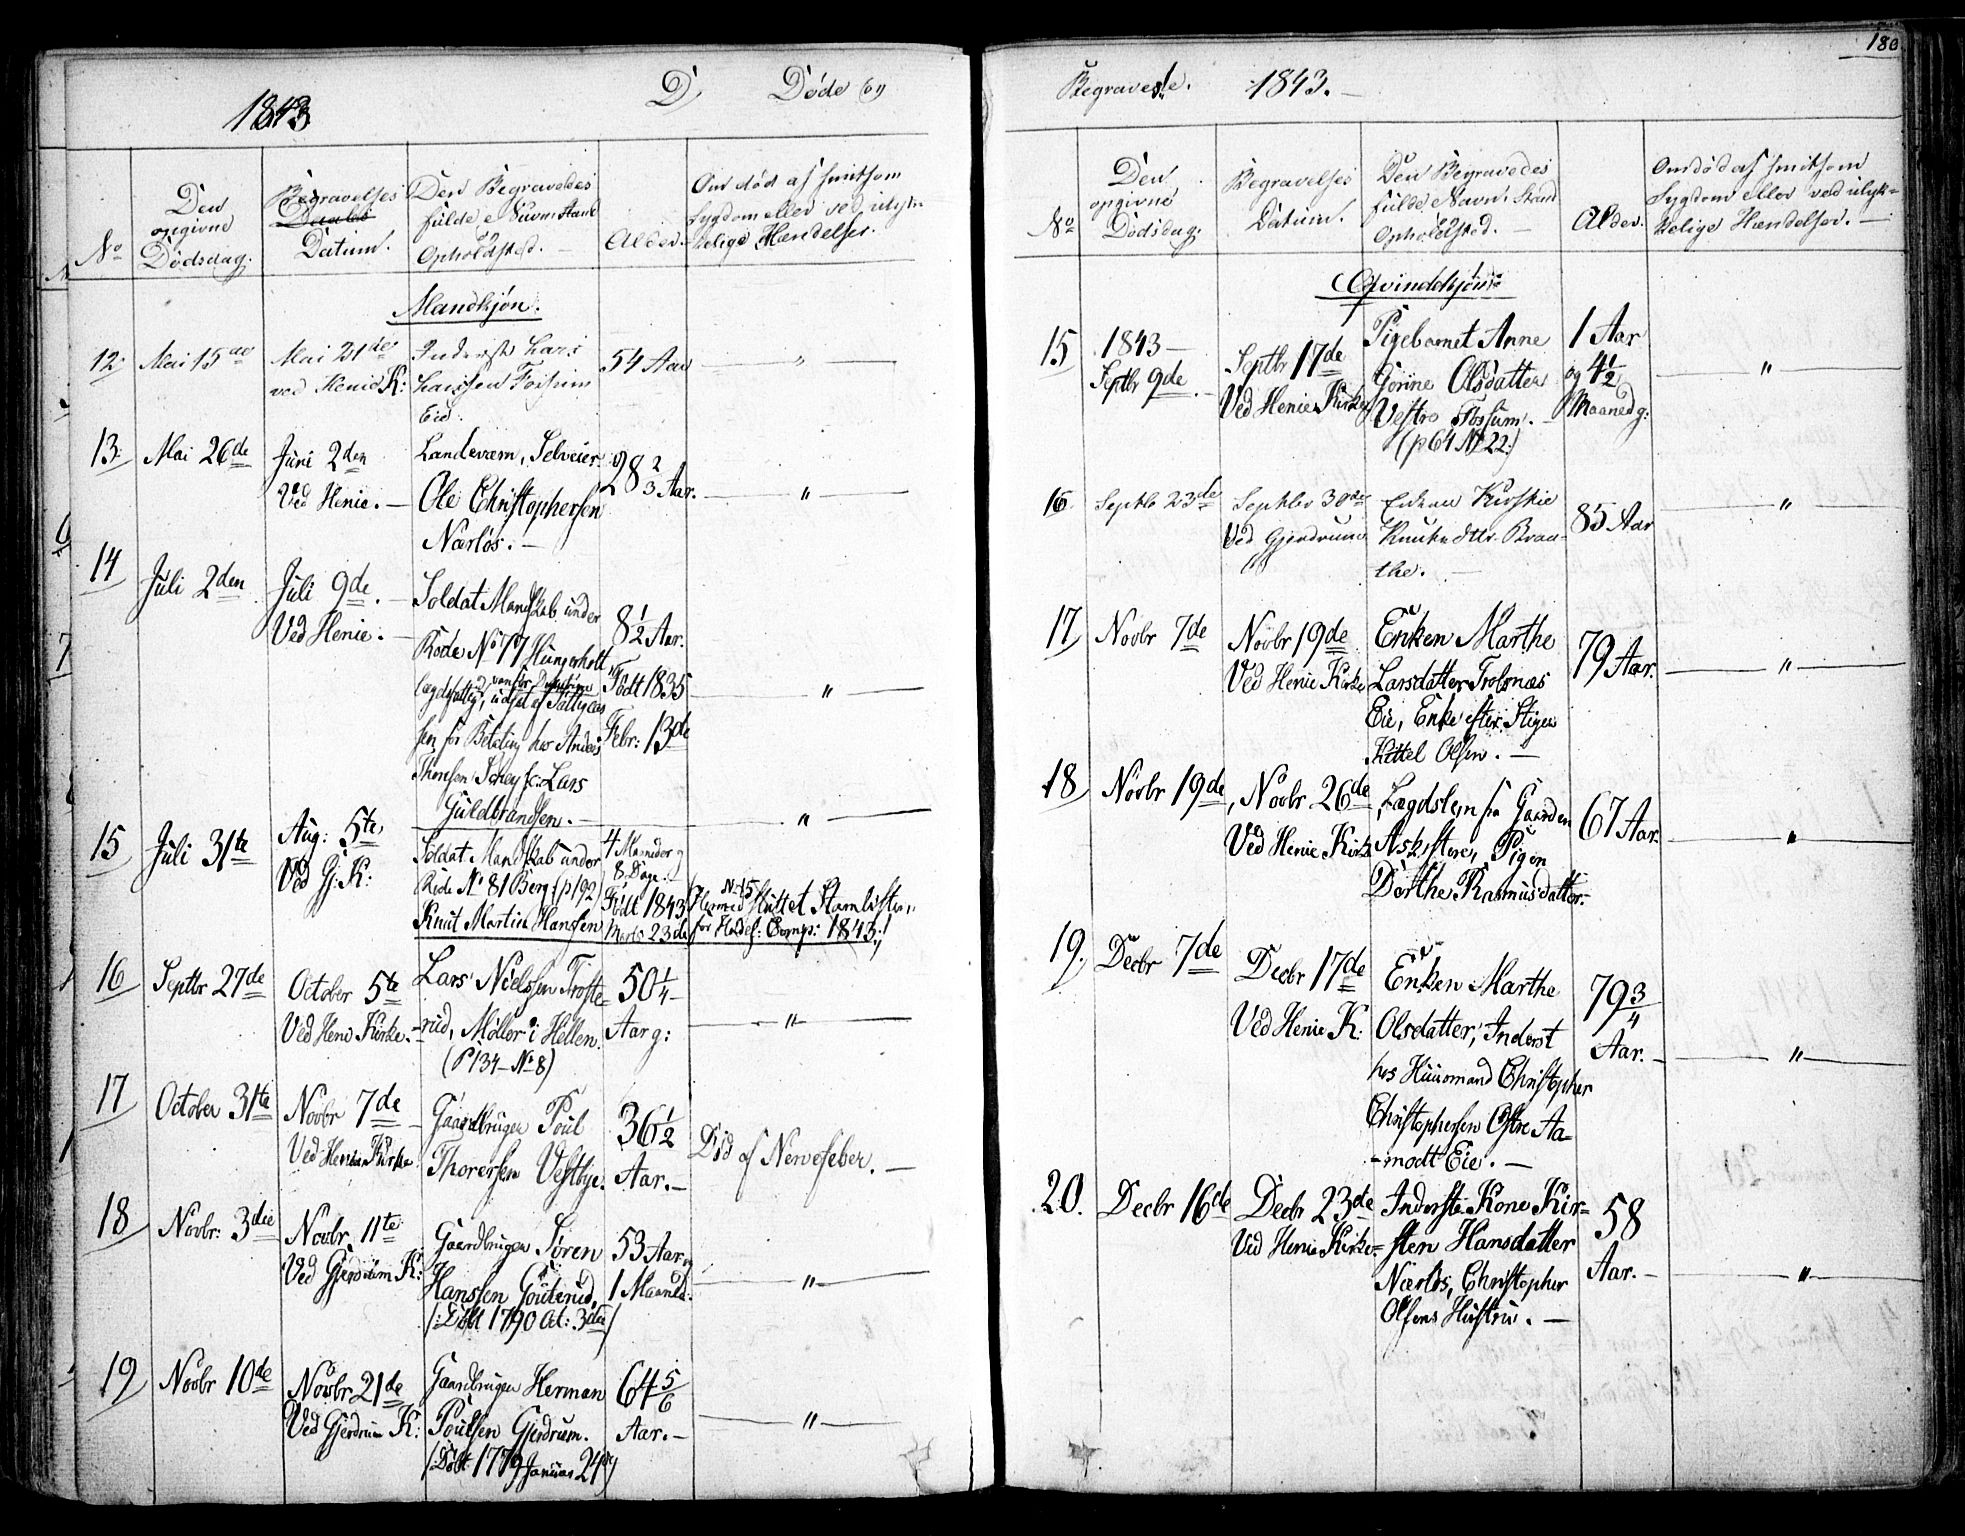 1843
D. Døde og
No
Den
opgivne
Dødsdag.
Begravelses
Datum.
Den Begravedes
fulde Navn Stand
og
Opholdsted. —
Alder.
Om død af smitsom
Sygdom eller ved ulyk-
kelige Hændelser.
Mandkjøn.
12. Mai 15de
Mai 21de
ved Henie K:
Inderst Lars
Larssen Fossum
Eid.
54 Aar
"
13. Mai 26de
Juni 2den
Ved Henie. —
Landeværn, Selveier
Ole Christophersen
Nærløs. —
28 2/3 Aar.
"
14
Juli 2den
Juli 9de.
Ved Henie. —
Soldat Mandskab under
Rode No 77 Hungerholt
lægdsfattig, udsat af Fattigcas
sen for Betaling hos Anders
Thoresen Schey Lars
Guldbrandsen. —
8 1/2 Aar.
Født 1835
Febr: 13de
"
15 Juli 31te
Aug: 5te,
Ved Gj. K:
Soldat Mandskab under
Rode No 81 Berg (p 192)
Knut Martin Hansen
4 Maaneder og
8 Dage.
Født 1843
Marts 23de
"
No 15
Hermed sluttet Stamlisten
for Comp: 1843.
16 Septbr 27de
October 5te
Ved Heni Kirke. —
Lars Nielssen Troste-
rud, Møller i Hellen.
(P 134 — No 8)
50 1/4
Aar g:
"
17 October 31te
Novbr 7de
Ved Henie Kirke
Gaardbruger Poul
Thoresen Vestbye.
36 1/2
Aar. —
Død af Nervefeber. —
18 Novbr: 3die
Novbr. 11te
Ved Gjerdrum K:
Gaardbruger Søren
Hanssen
/: Døbt 1790 Oct: 3die/
53 Aar og
1 Maaned.
"
19 Novbr 10de
Novbr 21de
Ved Gjerdrum K:
Gaardbruger Herman
Poulsen Gjerdrum.
/: Døbt 1779 Januar 24de/
64 5/6
Aar. —
"
180.
Begravede. 1843. —
No
Den
opgivne
Dødsdag.
Begravelses
Datum.
Den Begravedes
fulde Navn, Stand
Opholdsted.
Alder.
Om død af smitsom
Sygdom eller ved ulyk-
kelige Hændelser. —
Qvindekjøn
15 1843 —
Septbr 9de.
Septbr 17de
Ved Henie Kirke
Pigebarnet Anne
Gorine Olsdatter
Vestre Fossum. —
(p 64 No 22.)
1 Aar
og 4 1/2
Maaned g:
"
16. Septb 23de
Septbr 30de
Ved Gjerdrum
Enken Kirstie
Knutsdttr. Braa-
the. —
85 Aar
"
17 Novbr 7de
Novbr 19de
Ved Henie Kirke
Enken Marthe
Larsdatter
Eie, Enke efter Stiger
Kittel Olsen. —
79 Aar.
"
18 Novbr 19de
Novbr 26de
Ved Henie Kirke
Lægdslem fra Gaarden
Ask , Pigen
Dorthe Rasmusdatter.
67 Aar.
"
19. Decbr 7de
Decbr 17de
Ved Henie K:
Enken Marthe
Olsdatter, Inderst
hos Huusmand Christopher
Christophersen Østre Aa-
modt Eie. —
79 3/4
Aar. —
"
20. Decbr 16de
Decbr 23de
Ved Henie Kirke
Inderste Kone Kir-
sten Hansdatter
Nærløs, Christopher
Olsens Hustru. —
58
Aar. —
"